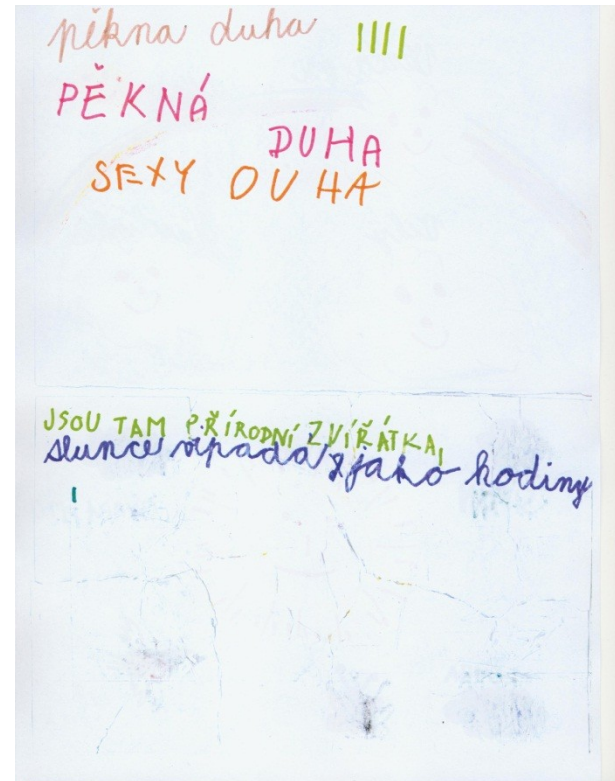 pěkna duha IIII
PĚKNÁ
DUHA
SEXY DUHA
JSOU TAM PŘÍRODNÍ ZVÍŘÁTKA,
slunce vipada jako hodiny